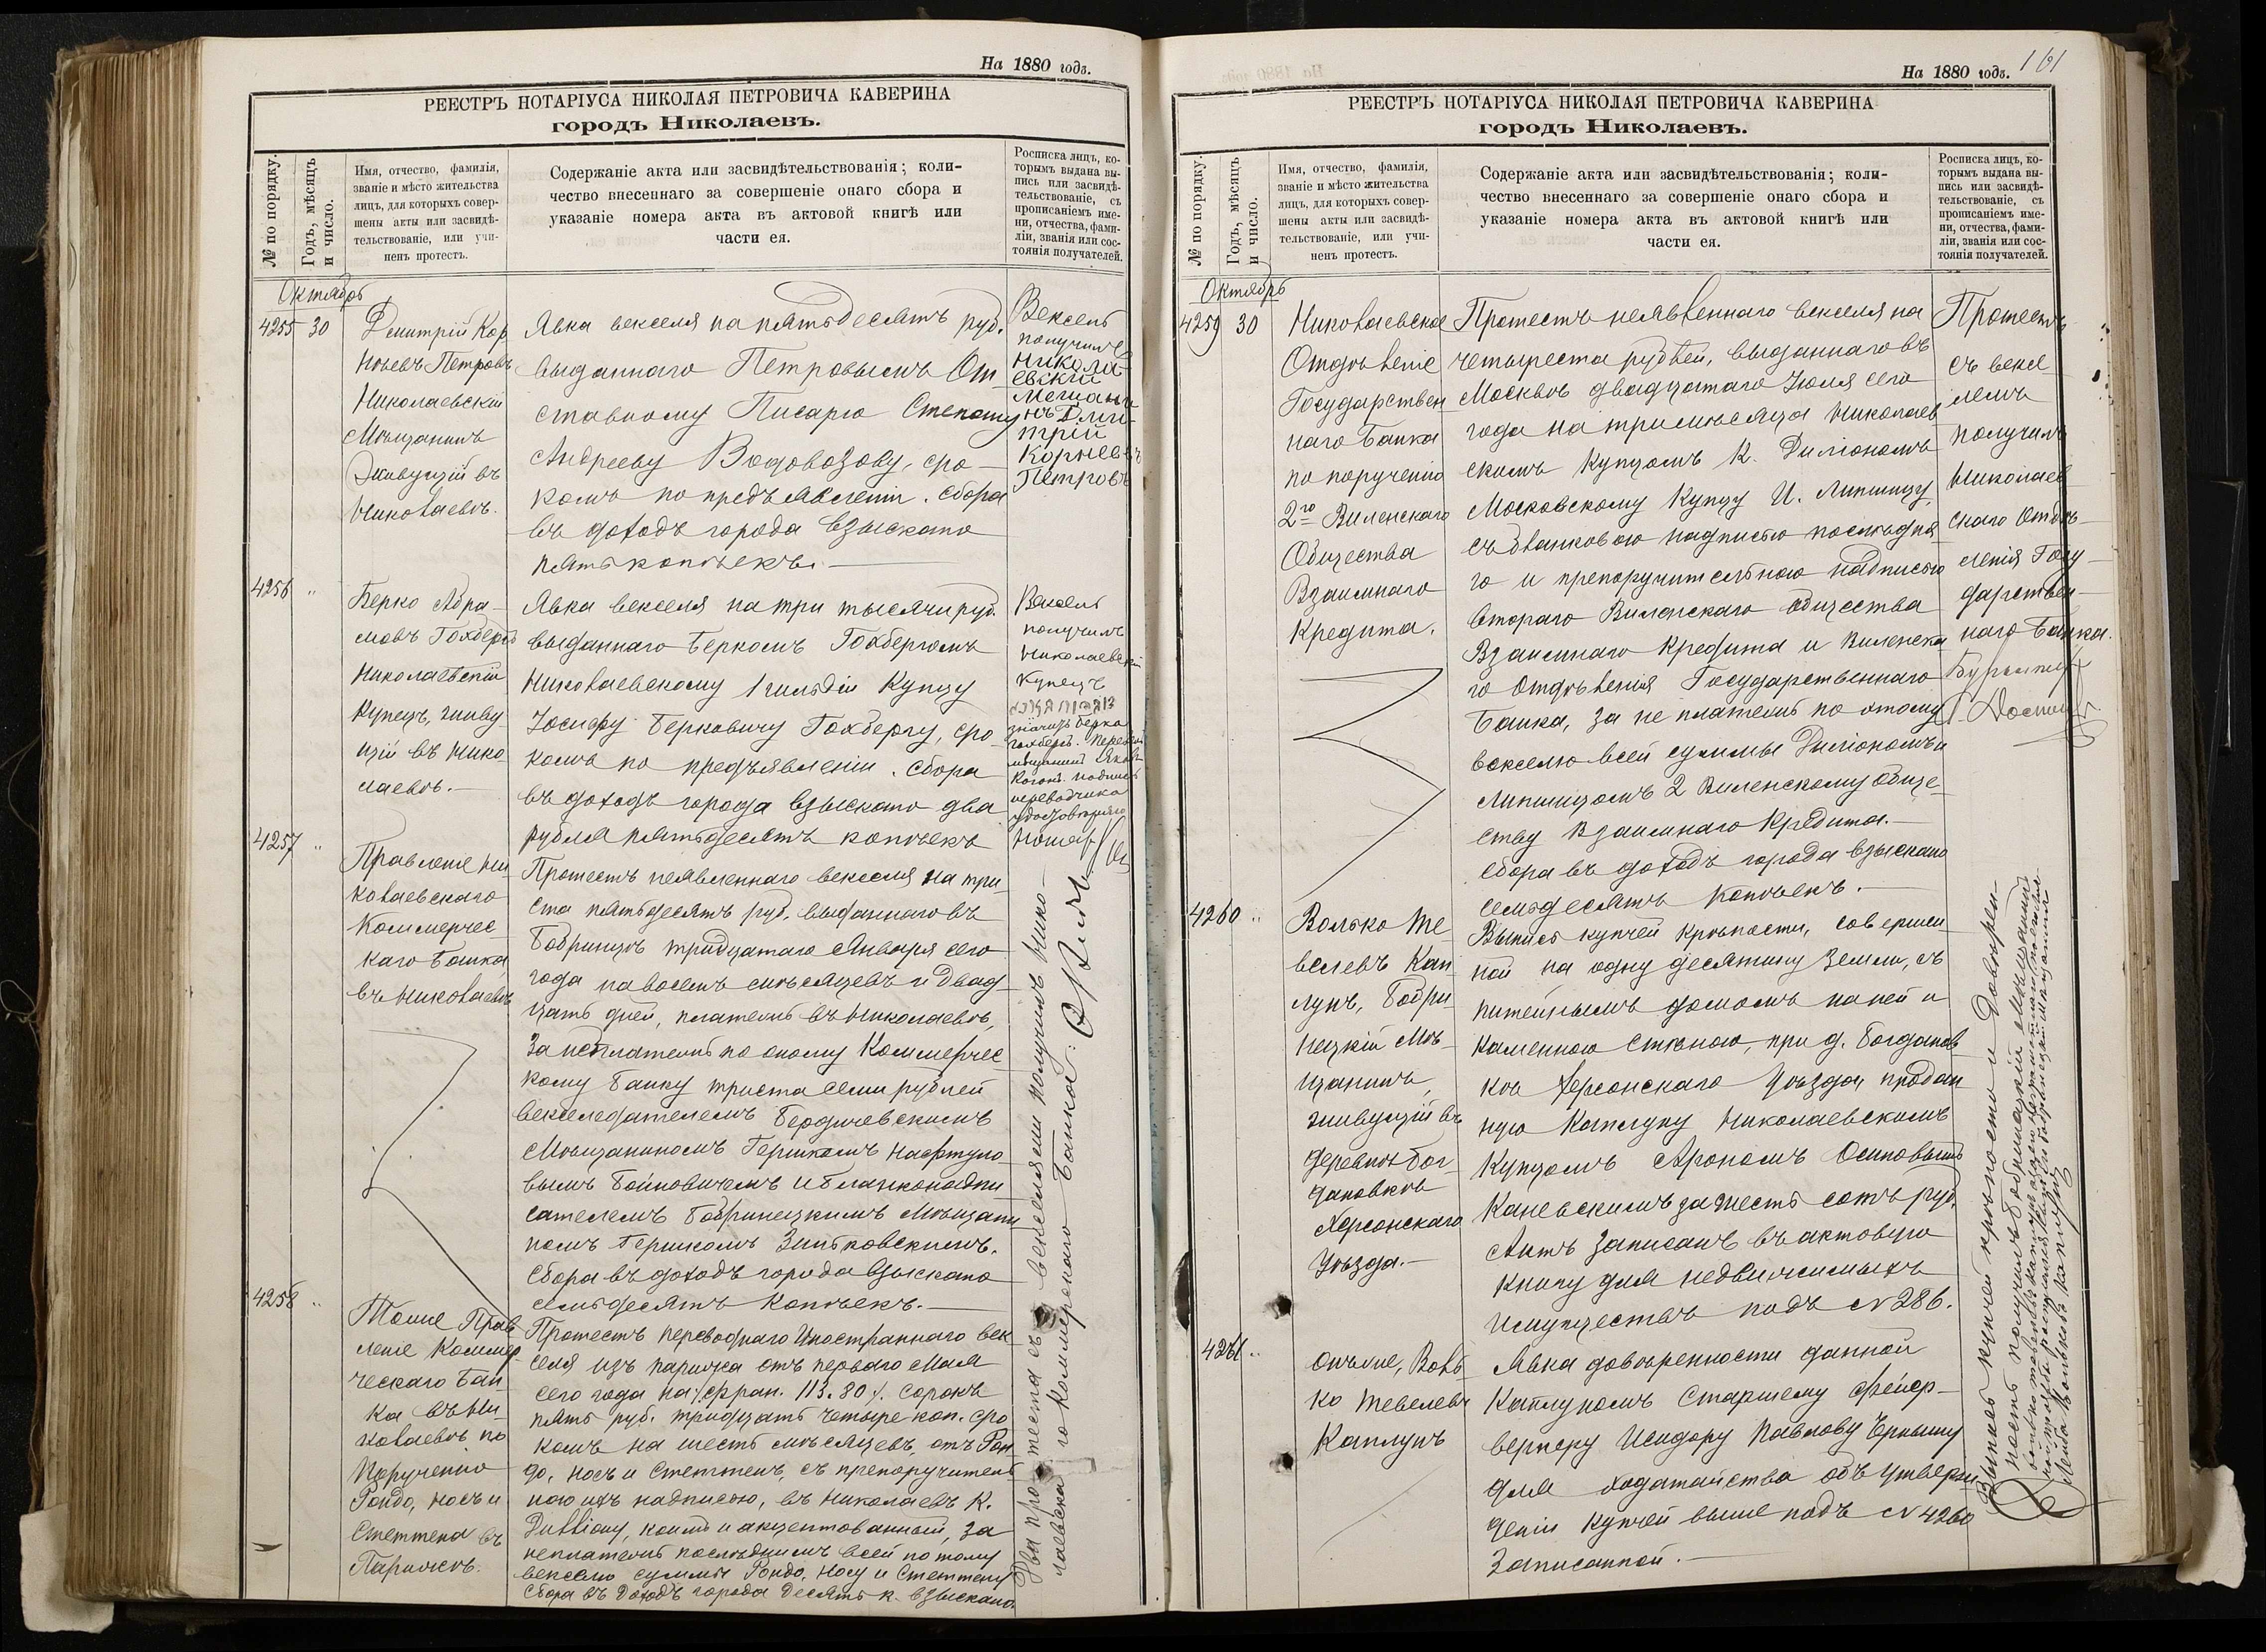 На 1880 годъ.
РЕЕСТРЪ НОТАРІУСА НИКОЛАЯ ПЕТРОВИЧА КАВЕРИНА
городъ Николаевъ.
№ по порядку.
Годъ, мѣсяцъ
и число.
Имя, отчество, фамилія,
званіе и мѣсто жительства
лицъ, для которыхъ совер-
шены акты или засвидѣ-
тельствованіе, или учи-
ненъ протестъ.
Содержаніе акта или засвидѣтельствованія; коли-
чество внесеннаго за совершеніе онаго сбора и
указаніе номера акта въ актовой книгѣ или
части ея.
Росписка лицъ, ко-
торымъ выдана вы-
пись или засвидѣ-
тельствованіе, съ
прописаніемъ име-
ни, отчества, фами-
ліи, званія или сос-
тоянія получателей.
Октябрь
4255 30
Дмитрій Кор
нѣевъ Петровъ
Николаевскій
Мѣщанинъ
Живущій въ
Николаевѣ.
Явка векселя на пятьдесятъ руб.
выданнаго Петровымъ От-
ставному Писарю Степану
Андрееву Водовозову, сро-
комъ по предъявленіи. Сбора
въ доходъ города взыскано
пять копѣекъ.
Вексель
получилъ
Никола-
евскій
Мещани
нъ Дми-
трій
Корнеевъ
Петровъ
4256 "
Берко Абра-
мовъ Гохбергъ
Николаевскій
Купецъ, живу
щій въ Нико
лаевѣ.
Явка векселя на три тысячи руб.
выданнаго Беркомъ Гохбергомъ
Николаевскому 1 гильдіи Купцу
Іосифу Берковичу Гохбергу, сро-
комъ по предъявленіи. Сбора
въ доходъ города взыскано два
рубля пятьдесятъ копѣекъ
Вексель
получилъ
Николаевскій
Купецъ
значитъ Берка
Гохбергъ.
Когонъ. подпись
переводчика
4257 "
Правленіе Ни
колаевскаго
Коммерчес-
каго Банка
въ Николаевѣ
Протестъ неявленнаго векселя на три
ста пятьдесятъ руб. выданнаго въ
Бобринцѣ тридцатаго Января сего
года на восемь мѣсяцевъ и двад-
цать дней, платежъ въ Николаевѣ,
За неплатежъ по оному Коммерчес
кому Банку триста семи рублей
векселедателемъ Бердичевскимъ
Мѣщаниномъ Гершкомъ Нафтуло
вымъ Бойновичемъ и бланконадпи
сателемъ Бобринецкимъ Мѣщани
номъ Гершкомъ Зитковскимъ.
Сбора въ доходъ города взыскано
семьдесятъ копѣекъ.
4258 "
Тоже Прав
леніе Коммер
ческаго Бан-
ка въ Ни-
колаевѣ по
Порученію
Рондо, Носъ и
Стеттена въ
Парижѣ.
Протестъ переводнаго Иностраннаго век
селя изъ Парижа отъ перваго Мая
сего года на фран. 113.80 /. сорокъ
пять руб. тридцать четыре коп. сро
комъ на шесть мѣсяцевъ, отъ Рон
до, Носъ и Стеттенъ, съ препоручитель
ною ихъ надписью, въ Николаевъ К.
Диліону, коимъ и акцептованный, за
неплатежъ послѣднимъ всей по тому
векселю суммы Рондо, Носу и Стеттену
Сбора въ доходъ города десять к. взыскано.
Два протеста съ векселями получилъ Нико-
лаевскаго Коммерческаго Банка:
На 1880 годъ.
161
РЕЕСТРЪ НОТАРІУСА НИКОЛАЯ ПЕТРОВИЧА КАВЕРИНА
городъ Николаевъ.
№ по порядку.
Годъ, мѣсяцъ
и число.
Имя, отчество, фамилія,
званіе и мѣсто жительства
лицъ, для которыхъ совер-
шены акты или засвидѣ-
тельствованіе, или учи-
ненъ протестъ.
Содержаніе акта или засвидѣтельствованія; коли-
чество внесеннаго за совершеніе онаго сбора и
указаніе номера акта въ актовой книгѣ или
части ея.
Росписка лицъ, ко-
торымъ выдана вы-
пись или засвидѣ-
тельствованіе, съ
прописаніемъ име-
ни, отчества, фами-
ліи, званія или сос-
тоянія получателей.
Октябрь
4259 30
Николаевское
Отдѣленіе
Государствен
наго Банка
по порученію
2го Виленскаго
Общества
Взаимнаго
Кредита.
Протестъ неявленнаго векселя на
четыреста рублей, выданнаго въ
Москвѣ двадцатаго Іюля сего
года на три мѣсяца Николаев
скимъ Купцомъ К. Диліономъ
Московскому Купцу И. Липшицу,
съ бланковою надписью послѣдня
го и препоручительною надписью
Втораго Виленскаго Общества
Взаимнаго Кредита и Виленска
го Отдѣленія Государственнаго
Банка, за не платежъ по этому
векселю всей суммы Диліономъ и
Липшицомъ 2 Виленскому Обще-
ству Взаимнаго Кредита.
Сбора въ доходъ города взыскано
семьдесятъ копѣекъ.
Протестъ
съ вексе
лемъ
получилъ
Николаев
скаго Отдѣ-
ленія Госу-
дарствен-
наго Банка.
4260 "
Волько Те-
велевъ Кап
лунъ, Бобри-
нецкій Мѣ-
щанинъ,
живущій въ
деревнѣ Бог-
дановкѣ
Херсонскаго
Уѣзда.
Выпись купчей крѣпости, совершен
ной на одну десятину земли, съ
питейнымъ домомъ на ней и
каменною стѣною, при д. Богданов
кѣ Херсонскаго Уѣзда, продан
ную Каплуну Николаевскимъ
Купцомъ Арономъ Осиповымъ
Каневскимъ за шесть сотъ руб.
Актъ записанъ въ актовую
книгу для недвижимыхъ
имуществъ подъ № 286.
4261 "
Онъ же, Воль
ко Тевелевъ
Каплунъ
Явка довѣренности данной
Каплуномъ Старшему фейер-
веркеру Исидору Павлову Ерныну
для ходатайства объ утверж
деніи купчей выше подъ № 4260
Записанной.
Выпись купчей крѣпости и Доверен-
ность получилъ Бобринецкій Мѣщанинъ